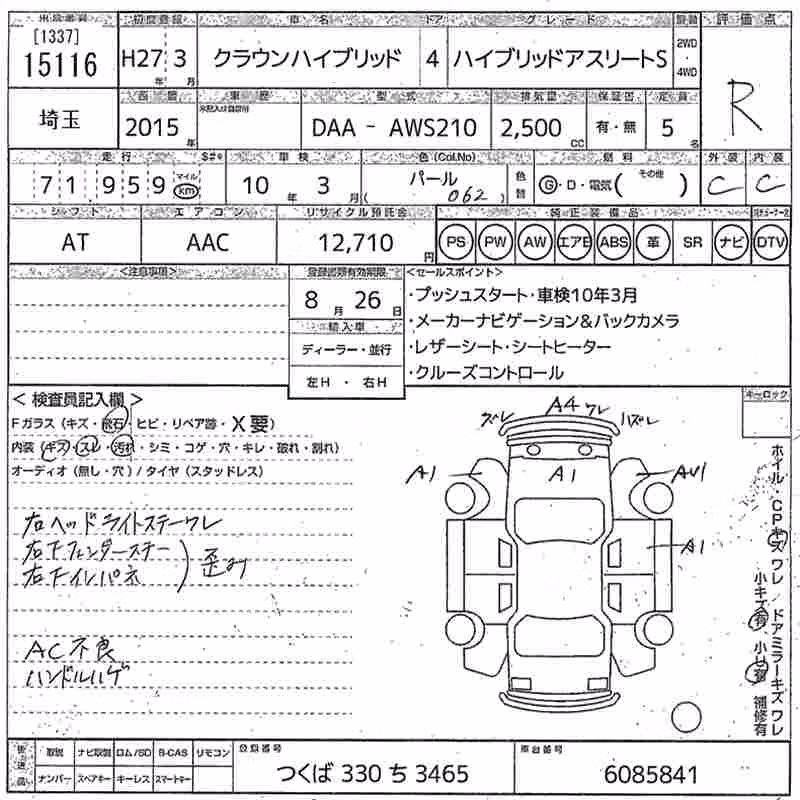 出品番号 初度登録 車名 ドア グレード 駆動 評価点
[1337]
15116 H27年 3月 クラウンハイブリッド 4 ハイブリッドアスリートS 2WD・4WD R
埼玉
西暦 車歴 型式 排気量 保証書 定員
2015年 DAA - AWS210 2,500cc 有・無 5名
走行 S#* 車検 色(Col.No) 色替 燃料 外装 内装
71959 マイル km 10年 3月 パール (062) G・D・電気( その他 ) C C
シフト エアコン リサイクル預託金 純正装備品
AT AAC 12,710円 PS PW AW エアB ABS 革 SR ナビ DTV
<注意事項> 登録書類有効期限 <セールスポイント>
8月26日
・プッシュスタート・車検10年3月
輸入車
・メーカーナビゲーション&バックカメラ
ディーラー・並行
・レザーシート・シートヒーター
左H ・ 右H
・クルーズコントロール
<検査員記入欄>
Fガラス(キズ・飛石・ヒビ・リペア跡・X要)
内装(キズ・スレ・汚れ・シミ・コゲ・穴・キレ・破れ・割れ)
オーディオ(無し・穴)/タイヤ(スタッドレス)
右ヘッドライトステーワレ
右Fフェンダーステー
歪み
AC不良
ハンドルハゲ
キーロック
ズレ A4ワレ ハズレ
A1 A1
A1
ホイル・CPキズワレ/ドアミラーキズワレ
小キズ有 小凹有 補修有
後送品
取説 ナビ取説 ロム/SD B-CAS リモコン
ナンバー スペアキー キーレス スマートキー
登録番号
つくば 330 ち 3465
車台番号
6085841